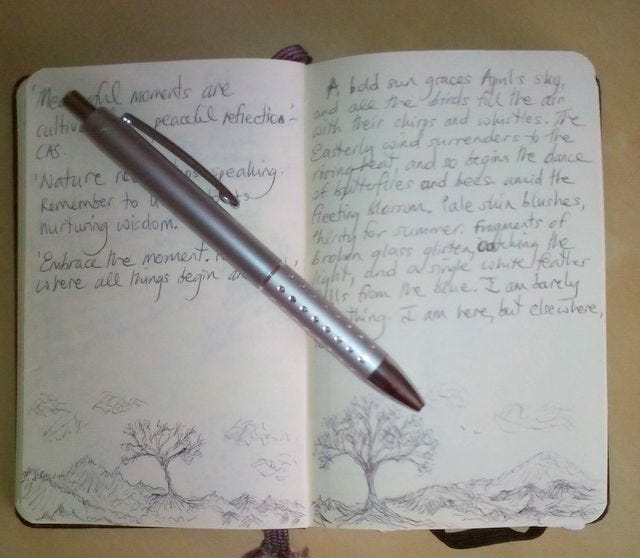 moments are
peaceful reflection'-
CAS.
'Nature speaking.
Remember to
nurturing wisdom.
'Embrace the moment.
where all things begin
A bold sun graces April's sky,
and all the birds fill the air
with their chirps and whistles. The
Easterly wind surrenders to the
rising heat, and so begins the dance
of butterflies and bees. amid the
fleeting blossom. Pale skin blushes,
thirsty for summer. fragments of
broken glass glisten, catching the
light, and a single white feather
from the blue. I am barely
thing. I am here, but elsewhere,